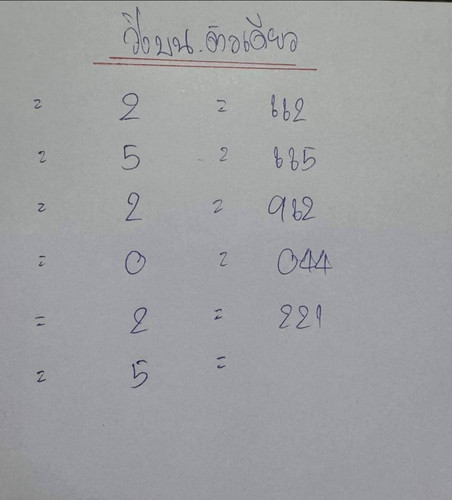 วิ่งบน.ตัวเดียว
= 2 = 662
= 5 = 665
= 2 = 962
= 0 = 044
= 2 = 221
= 5 =